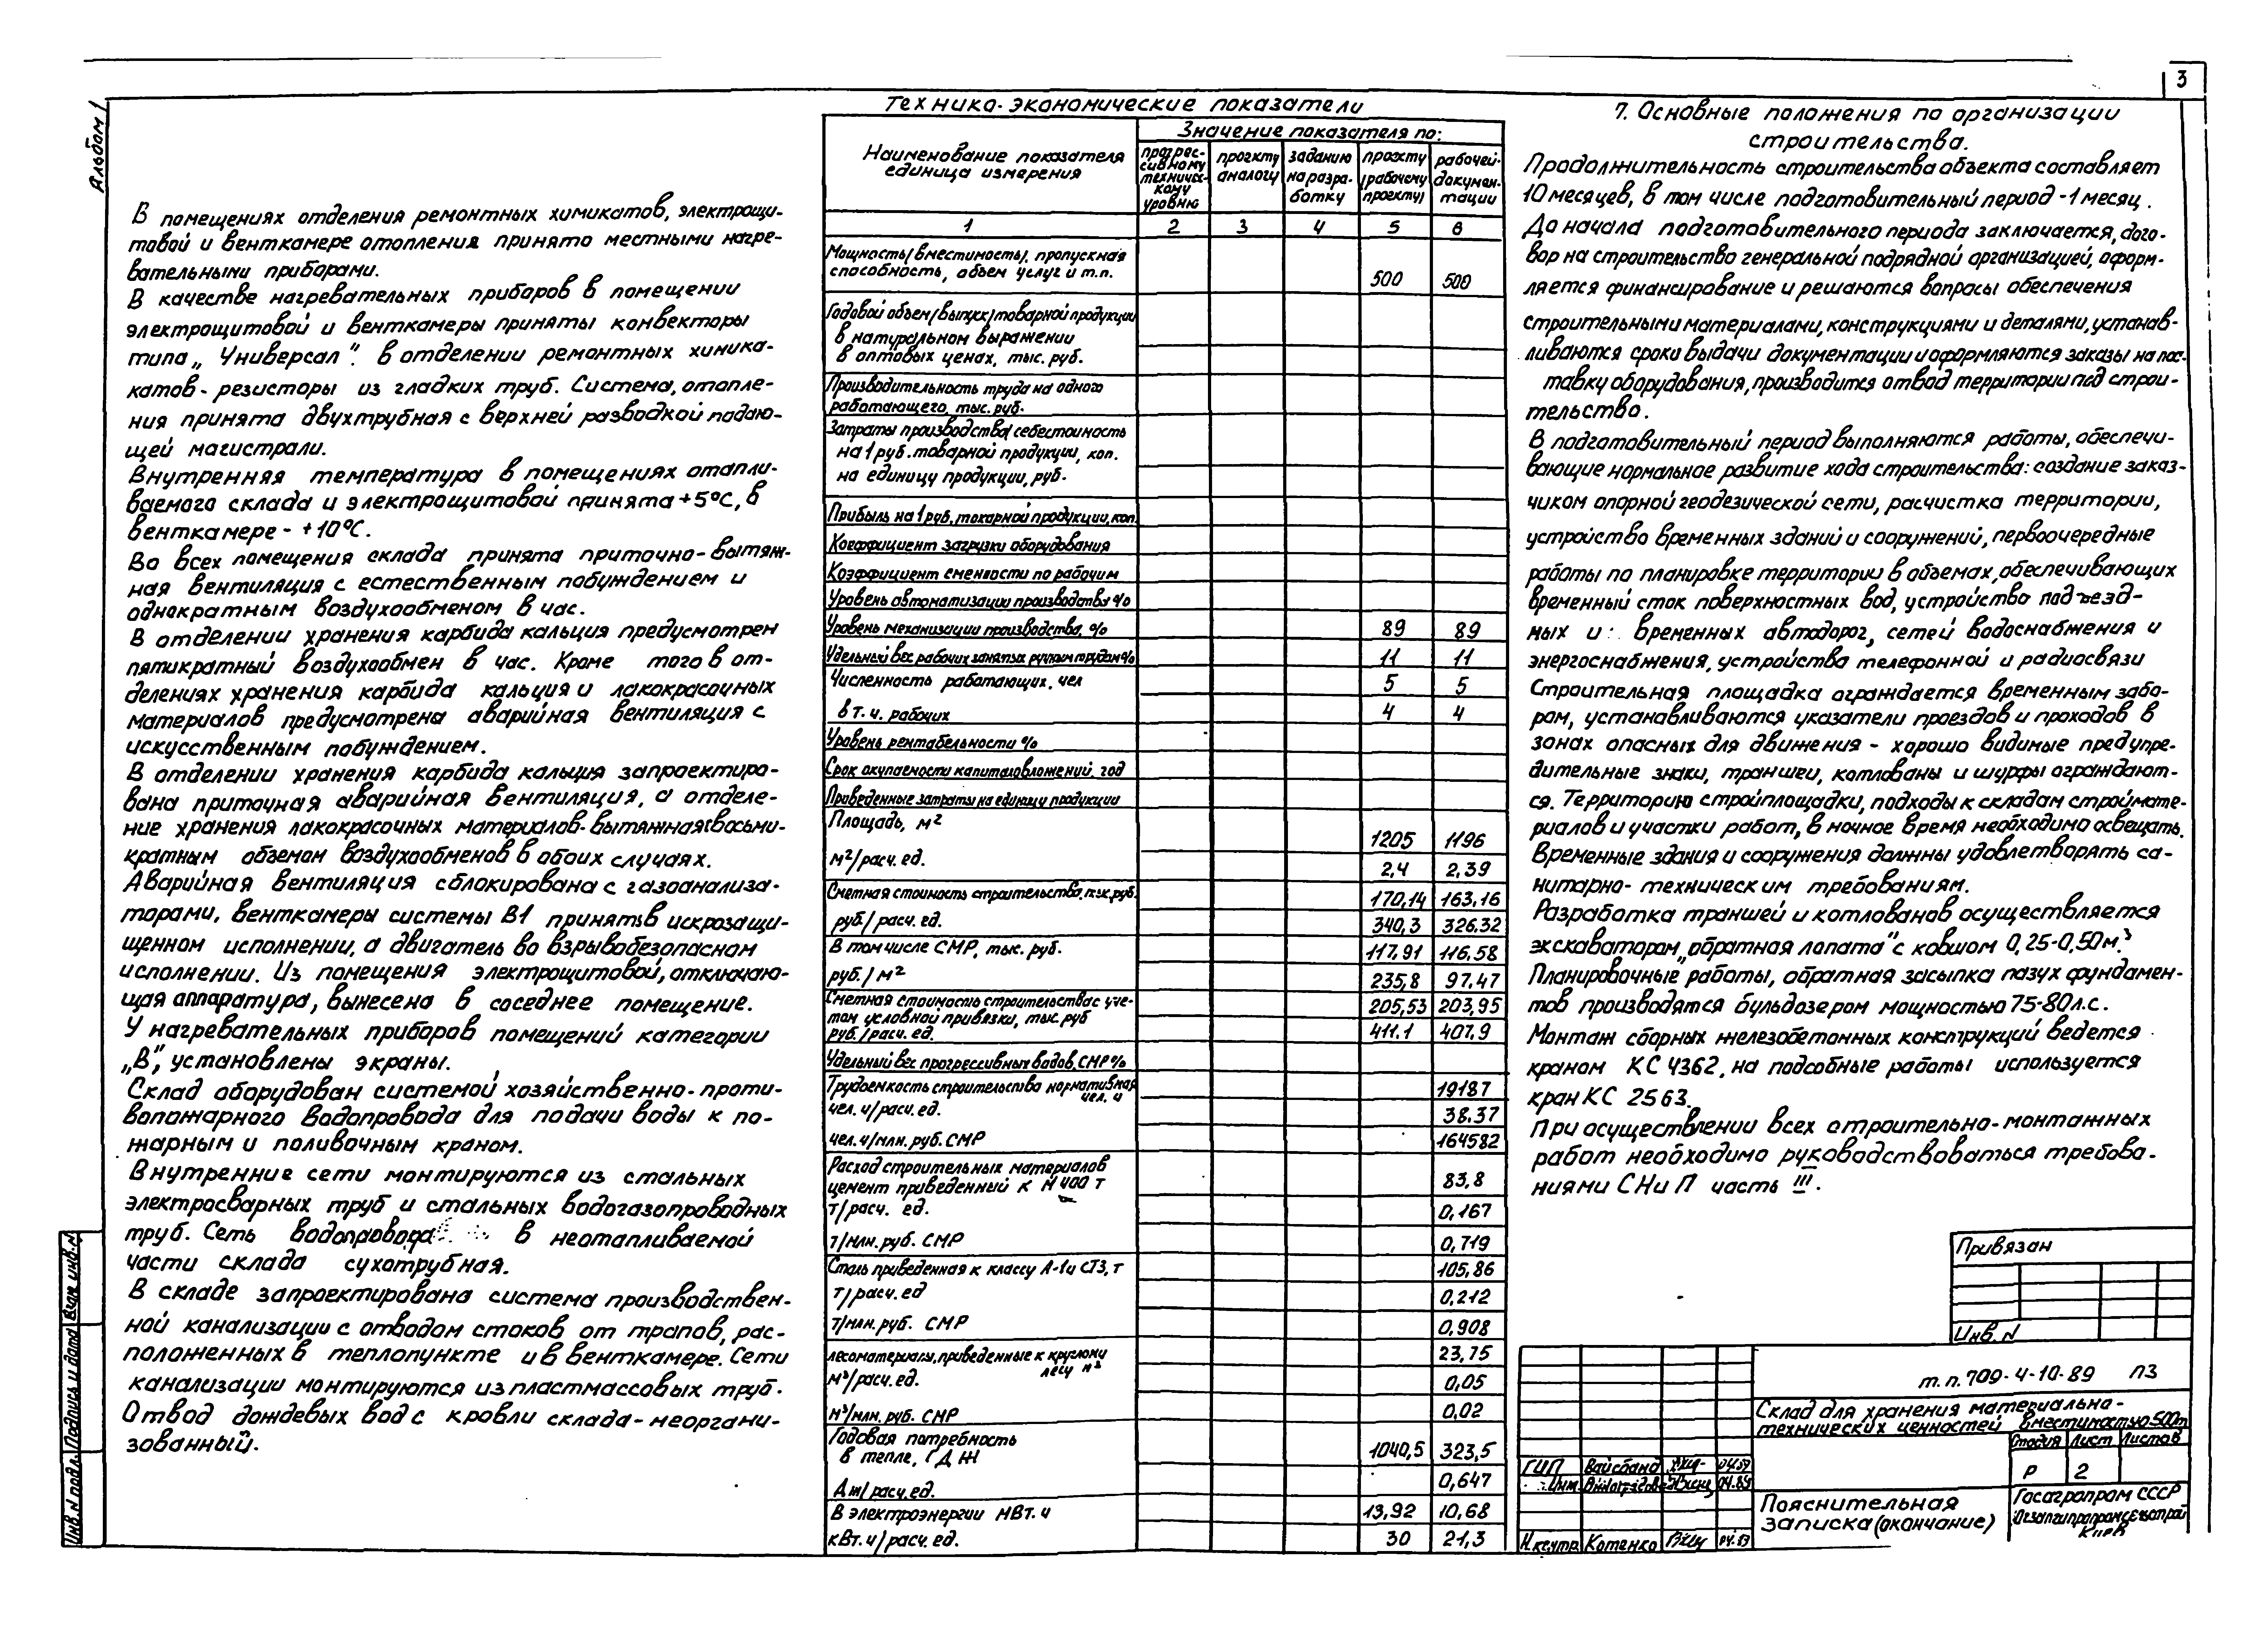 3
Альбом 1
В помещениях отделения ремонтных химикатов, электрощи-
товой и венткамере отопления принято местными нагре-
вательными приборами.
В качестве нагревательных приборов в помещении
электрощитовой и венткамеры приняты конвекторы
типа „Универсал". в отделении ремонтных химика-
катов - резисторы из гладких труб. Система, отопле-
ния принята двухтрубная с верхней разводкой падаю-
щей магистрали.
Внутренняя температура в помещениях отапли-
ваемого склада и электрощитовой принята +5°С, в
венткамере - +10°С.
Во всех помещения склада принята приточно-вытяж-
ная вентиляция с естественным побуждением и
однократным воздухообменом в час.
В отделении хранения карбида кальция предусмотрен
пятикратный воздухообмен в час. Кроме того в от-
делениях хранения карбида кальция и лакокрасочных
материалов предусмотрена аварийная вентиляция с
искусственным побуждением.
В отделении хранения карбида кальция запроектиро-
вана приточная аварийная вентиляция, а отделе-
ние хранения лакокрасочных материалов-вытяжная(восьми-
кратным объемом воздухообменов в обоих случаях.
Аварийная вентиляция сблокирована с газоанализа-
торами, венткамеры системы В1 приняты в искрозащи-
щенном исполнении, а двигатель во взрывобезопасном
исполнении. Из помещения электрощитовой, отключаю-
щая аппаратура, вынесена в соседнее помещение.
У нагревательных приборов помещений категории
„В", установлены экраны.
Склад оборудован системой хозяйственно-проти-
вопожарного водопровода для подачи воды к по-
жарным и поливочным краном.
Внутренние сети монтируются из стальных
электросварных труб и стальных водогазопроводных
труб. Сеть водопровода в неотапливаемой
части склада сухотрубная.
В складе запроектирована система производствен-
ной канализации с отводом стоков от трапов, рас-
положенных в теплопункте и в венткамере. Сети
канализации монтируются из пластмассовых труб.
Отвод дождевых вод с кровли склада-неоргани-
зованный.
Технико-экономические показатели
Наименование показателя единица измерения
Значение показателя по:
прогрес-сивному техничес-кому уровню
проекту аналогу
заданию на разра-ботку
проекту (рабочему проекту)
рабочей докумен-тации
1 2 3 4 5 6
Мощность (вместимость), пропускная
способность, объем услуг и т.п. 500 500
Годовой объем (выпуск) товарной продукции
в натуральном выражении
в оптовых ценах, тыс. руб.
Производительность труда на одного
работающего, тыс. руб.
Затраты производства (себестоимость
на 1 руб. товарной продукции, коп.
на единицу продукции, руб.
Прибыль на 1 руб. товарной продукции, коп.
Коэффициент загрузки оборудования
Коэффициент сменности по рабочим
Уровень автоматизации производства %
Уровень механизации производства, % 89 89
Удельный вес рабочих занятых ручным трудом % 11 11
Численность работающих, чел 5 5
в т. ч. рабочих 4 4
Уровень рентабельности %
Срок окупаемости капиталовложений, год
Приведенные затраты на единицу продукции
Площадь, м² 1205 1196
м²/расч. ед. 2,4 2,39
Сметная стоимость строительства, тыс. руб. 170,14 163,16
руб/ расч. ед. 340,3 326.32
В том числе СМР, тыс. руб. 117,91 116,58
руб. / м² 235,8 97.47
Сметная стоимость строительства с уче- 205,53 203,95
том условной привязки, тыс. руб
руб. / расч. ед. 411.1 407.9
Удельный вес прогрессивных видов, СМР %
Трудоемкость строительства нормативная чел. ч 19187
чел. ч/расч. ед. 38.37
чел. ч/млн. руб. СМР 164582
Расход строительных материалов
цемент приведенный к М 400 т 83,8
т/расч. ед. 0,167
т/млн. руб. СМР 0,719
Сталь приведенная к классу А-1 и СТ3, т 105,86
т/расч. ед 0,212
т/млн. руб. СМР 0,908
лесоматериалы, приведенные к круглому лесу м³ 23,75
м³/расч. ед. 0,05
м³/млн. руб. СМР 0,02
Годовая потребность
в тепле, ГДЖ 1040,5 323,5
Дж/расч. ед. 0,647
В электроэнергии МВт. ч 13,92 10,68
кВт. ч/расч. ед. 30 21,3
7. Основные положения по организации
строительства.
Продолжительность строительства объекта составляет
10 месяцев, в том числе подготовительный период - 1 месяц.
До начала подготовительного периода заключается, дого-
вор на строительство генеральной подрядной организацией, оформ-
ляется финансирование и решаются вопросы обеспечения
строительными материалами, конструкциями и деталями, устанав-
ливаются сроки выдачи документации и оформляются заказы на пос-
тавку оборудования, производится отвод территории под строи-
тельство.
В подготовительный период выполняются работы, обеспечи-
вающие нормальное развитие хода строительства: создание заказ-
чиком опорной геодезической сети, расчистка территории,
устройство временных зданий и сооружений, первоочередные
работы по планировке территории в объемах, обеспечивающих
временный сток поверхностных вод, устройство подъезд-
ных и временных автодорог, сетей водоснабжения и
энергоснабжения, устройства телефонной и радиосвязи
Строительная площадка ограждается временным забо-
ром, устанавливаются указатели проездов и проходов в
зонах опасных для движения - хорошо видимые предупре-
дительные знаки, траншеи, котлованы и шурфы ограждают-
ся. Территорию стройплощадки, подходы к складам строймате-
риалов и участки работ, в ночное время необходимо освещать.
Временные здания и сооружения должны удовлетворять са-
нитарно-техническим требованиям.
Разработка траншей и котлованов осуществляется
экскаватором „обратная лопата" с ковшом 0,25-0,50 м³.
Планировочные работы, обратная засыпка пазух фундамен-
тов производятся бульдозером мощностью 75-80 л.с.
Монтаж сборных железобетонных конструкций ведется
краном КС 4362, на подсобные работы используется
кран КС 2563.
При осуществлении всех строительно-монтажных
работ необходимо руководствоваться требова-
ниями СНиП часть III.
Привязан
Инв. N
т.п. 709-4-10-89 ПЗ
Склад для хранения материально-
технических ценностей вместимостью 500т
Стадия Лист Листов
Р 2
ГИП Вайсбанд 04.89
04.89
Н.контр. Котенко 04.89
Пояснительная
записка (окончание)
Госагропром СССР
Киев
Инв. N подл. Подпись и дата Взам. инв. N